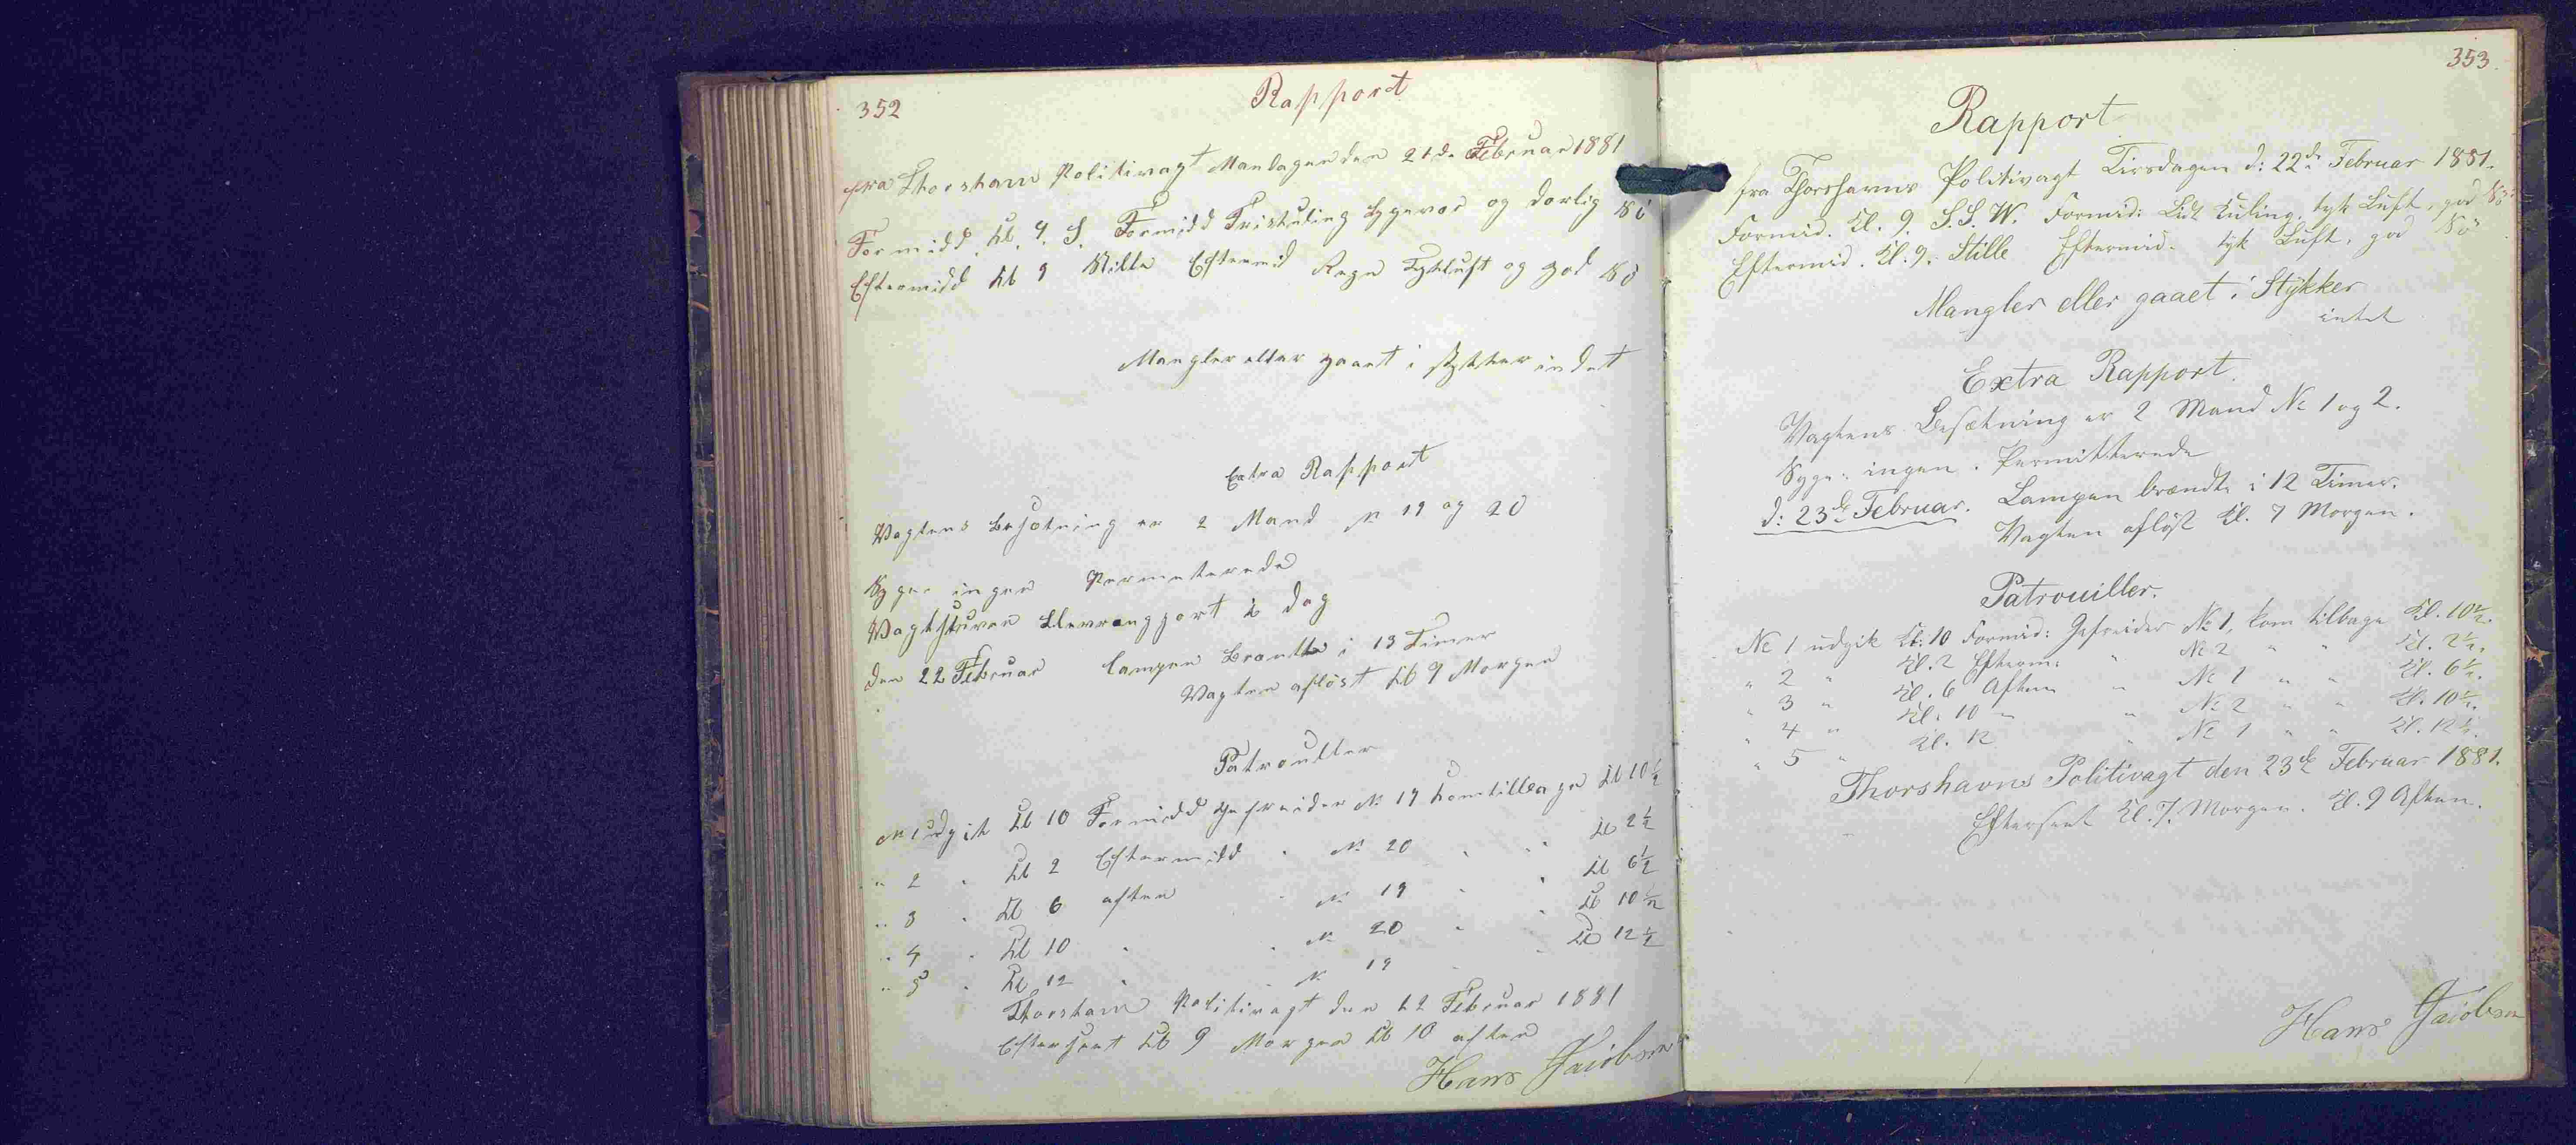 352
Rapport
fra Thorshavn Politivagt Mandagen den 21de Februar 1881
Formidd. Kl. 9. S. Formidd Friskuling Bygevær og dorlig Sö
Eftermidd Kl 9 Stille Eftermid Regn Tykluft og god Sö
Mangler eller gaaet i stykker indet
Extra Rapport
Vagtens Besætning er 2 Mand No 19 og 20
Syge ingen Permeterede
Vagtstuven Reengjort i dag
den 22 Februar Lampen Brendte i 13 Timer
Vagten aflöst Kl 9 Morgen
Patrouller
No 1 udgik Kl 10 Formidd Gefreider No 19 kom tilbage Kl 10½
" 2 " Kl 2 Eftermidd " No 20 " " Kl 2½
" 3 " Kl 6 aften " No 19 " " Kl 6½
" 4 " Kl 10 " " No 20 " " Kl 10½
" 5 " Kl 12 " " No 19 " " Kl 12½
Thorshavn Politivagt den 22 Februar 1881
Efterseet Kl 9 Morgen Kl 10 aften
Hans Jacobsen
353.
Rapport
fra Thorshavns Politivagt Tirsdagen d: 22de Februar 1881.
Formid. Kl. 9. S.S.W. Formid: Lidt Kuling, tyk Luft, god Sö
Eftermid. Kl. 9. Stille Eftermid. tyk Luft, god Sö
Mangler eller gaaet i Stykker
intet
Extra Rapport.
Vagtens Besætning er 2 Mand No 1 og 2.
Syge: ingen. Permitterede
d: 23de Februar. Lampen brændte i 12 Timer.
Vagten aflöst Kl. 7 Morgen.
Patrouiller.
No 1 udgik Kl. 10 Formid: Gefreider No 1, kom tilbage Kl. 10½.
" 2 " Kl. 2 Efterm: " No 2 " " Kl. 2½.
" 3 " Kl. 6 Aften " No 1 " " Kl. 6½.
" 4 " Kl. 10 " " No 2 " " Kl. 10½.
" 5 " Kl. 12 " No 1 " " Kl. 12½.
Thorshavns Politivagt den 23de Februar 1881.
Efterseet Kl. 7. Morgen. Kl. 9 Aften.
Hans Jacobsen